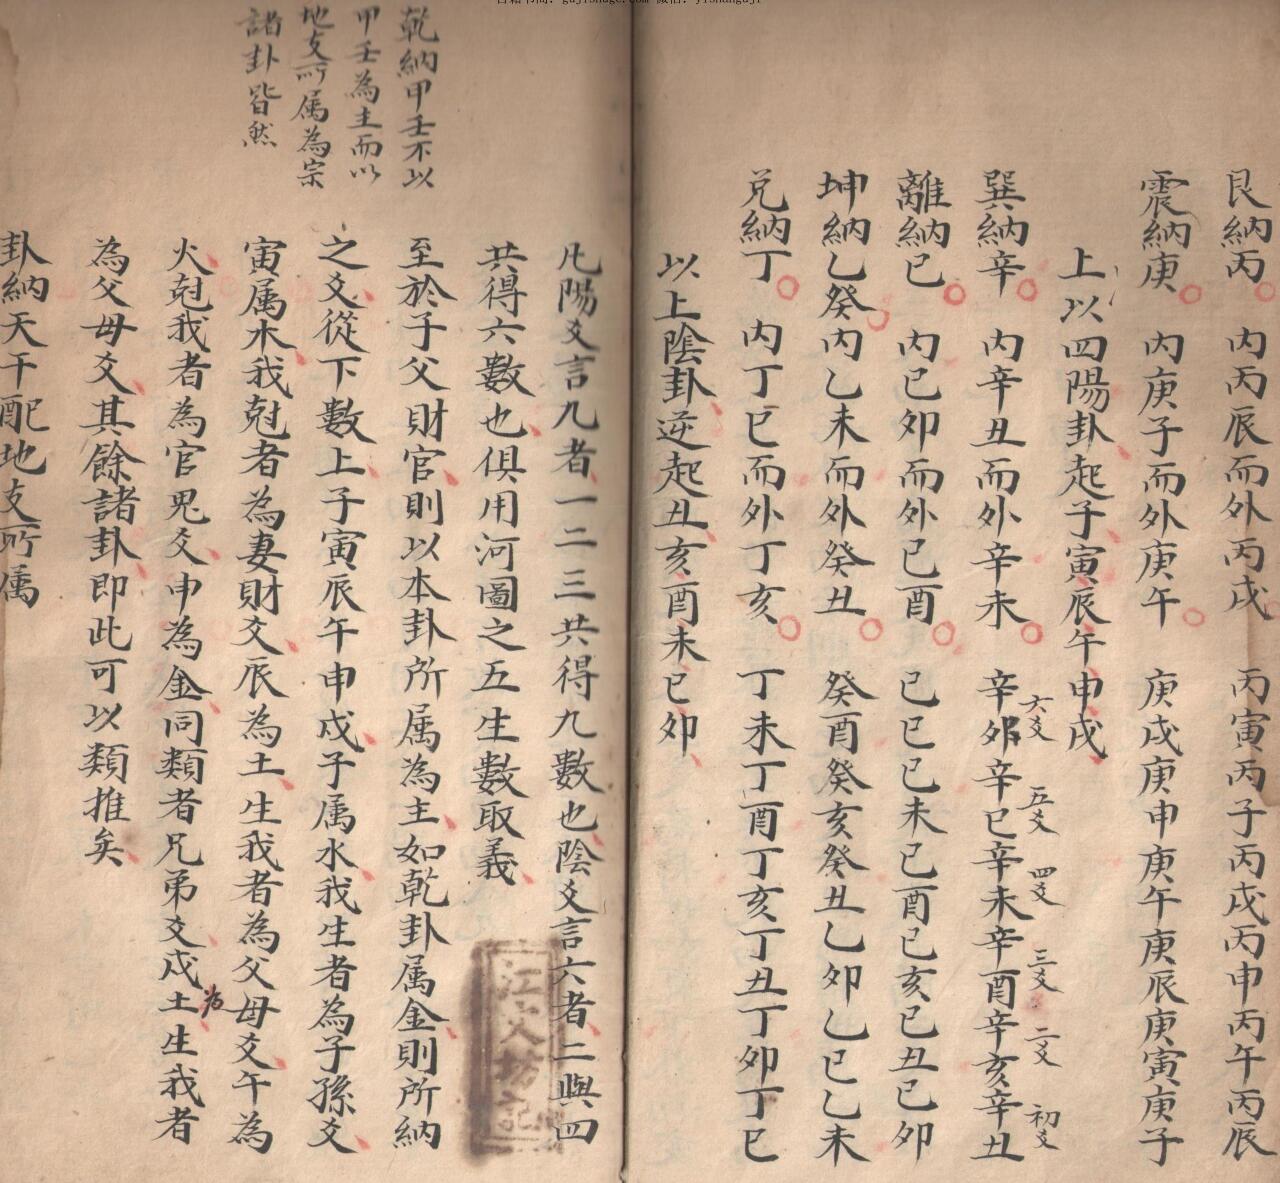 艮納丙 内丙辰而外丙戌 丙寅丙子丙戌丙申丙午丙辰
震納庚 内庚子而外庚午 庚戌庚申庚午庚辰庚寅庚子
上以四陽卦起子寅辰午申戌
巽納辛 内辛丑而外辛未 辛卯辛巳辛未辛酉辛亥辛丑
六爻 五爻 四爻 三爻 二爻 初爻
離納已 内已卯而外已酉 已巳已未已酉已亥已丑已卯
坤納乙癸 内乙未而外癸丑 癸酉癸亥癸丑乙卯乙巳乙未
兑納丁 内丁巳而外丁亥 丁未丁酉丁亥丁丑丁卯丁巳
以上陰卦逆起丑亥酉未巳卯
凡陽爻言九者一二三共得九數也陰爻言六者二與四
共得六數也俱用河圖之五生數取義
至於子父財官則以本卦所属為主如乾卦属金則所納
之爻從下數上子寅辰午申戌子属水我生者為子孫爻
寅属木我尅者為妻財爻辰為土生我者為父母爻午為
火尅我者為官鬼爻申為金同類者兄弟爻戌土生我者
為
為父母爻其餘諸卦即此可以類推矣
卦納天干配地支所属
乾納甲壬不以
甲壬為主而以
地支所属為宗
諸卦皆然